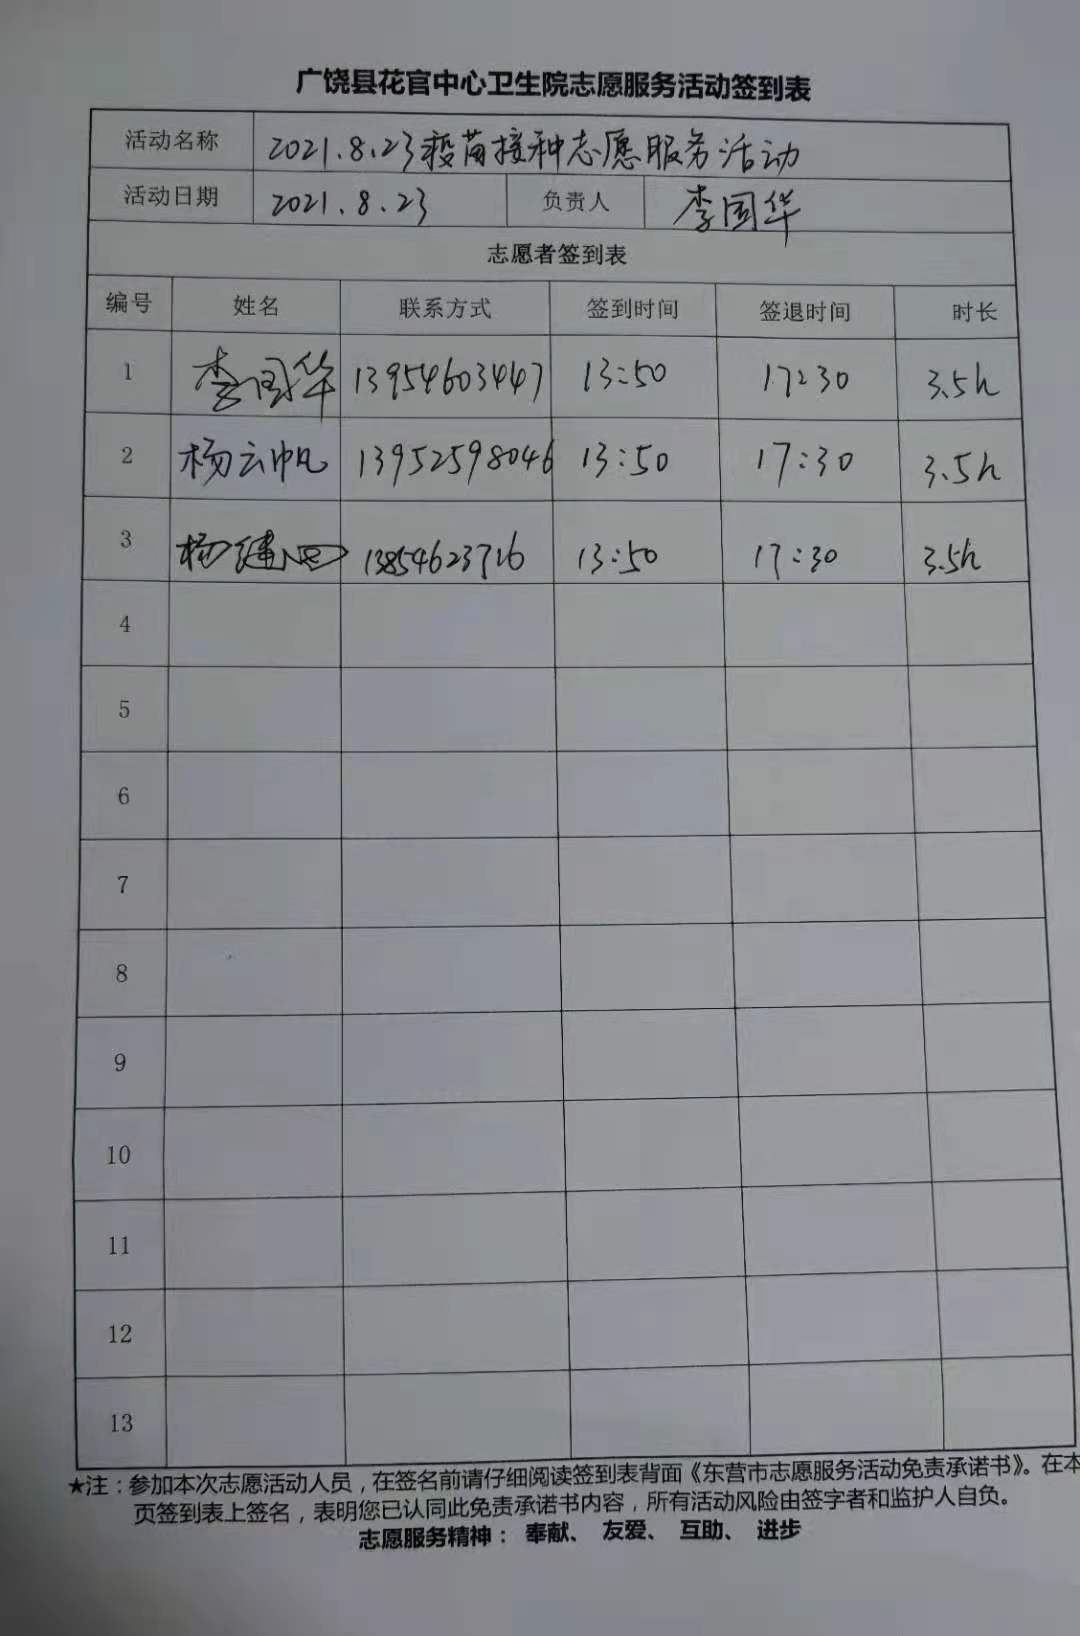 广饶县花官中心卫生院志愿服务活动签到表
活动名称 2021.8.23疫苗接种志愿服务活动
活动日期 2021.8.23 负责人 李国华
志愿者签到表
编号 姓名 联系方式 签到时间 签退时间 时长
1 李国华 13954603447 13:50 17:30 3.5h
2 杨云帆 13952598046 13:50 17:30 3.5h
3 杨建 13854623716 13:50 17:30 3.5h
4
5
6
7
8
9
10
11
12
13
★注：参加本次志愿活动人员，在签名前请仔细阅读签到表背面《东营市志愿服务活动免责承诺书》。在本
页签到表上签名，表明您已认同此免责承诺书内容，所有活动风险由签字者和监护人自负。
志愿服务精神： 奉献、 友爱、 互助、 进步